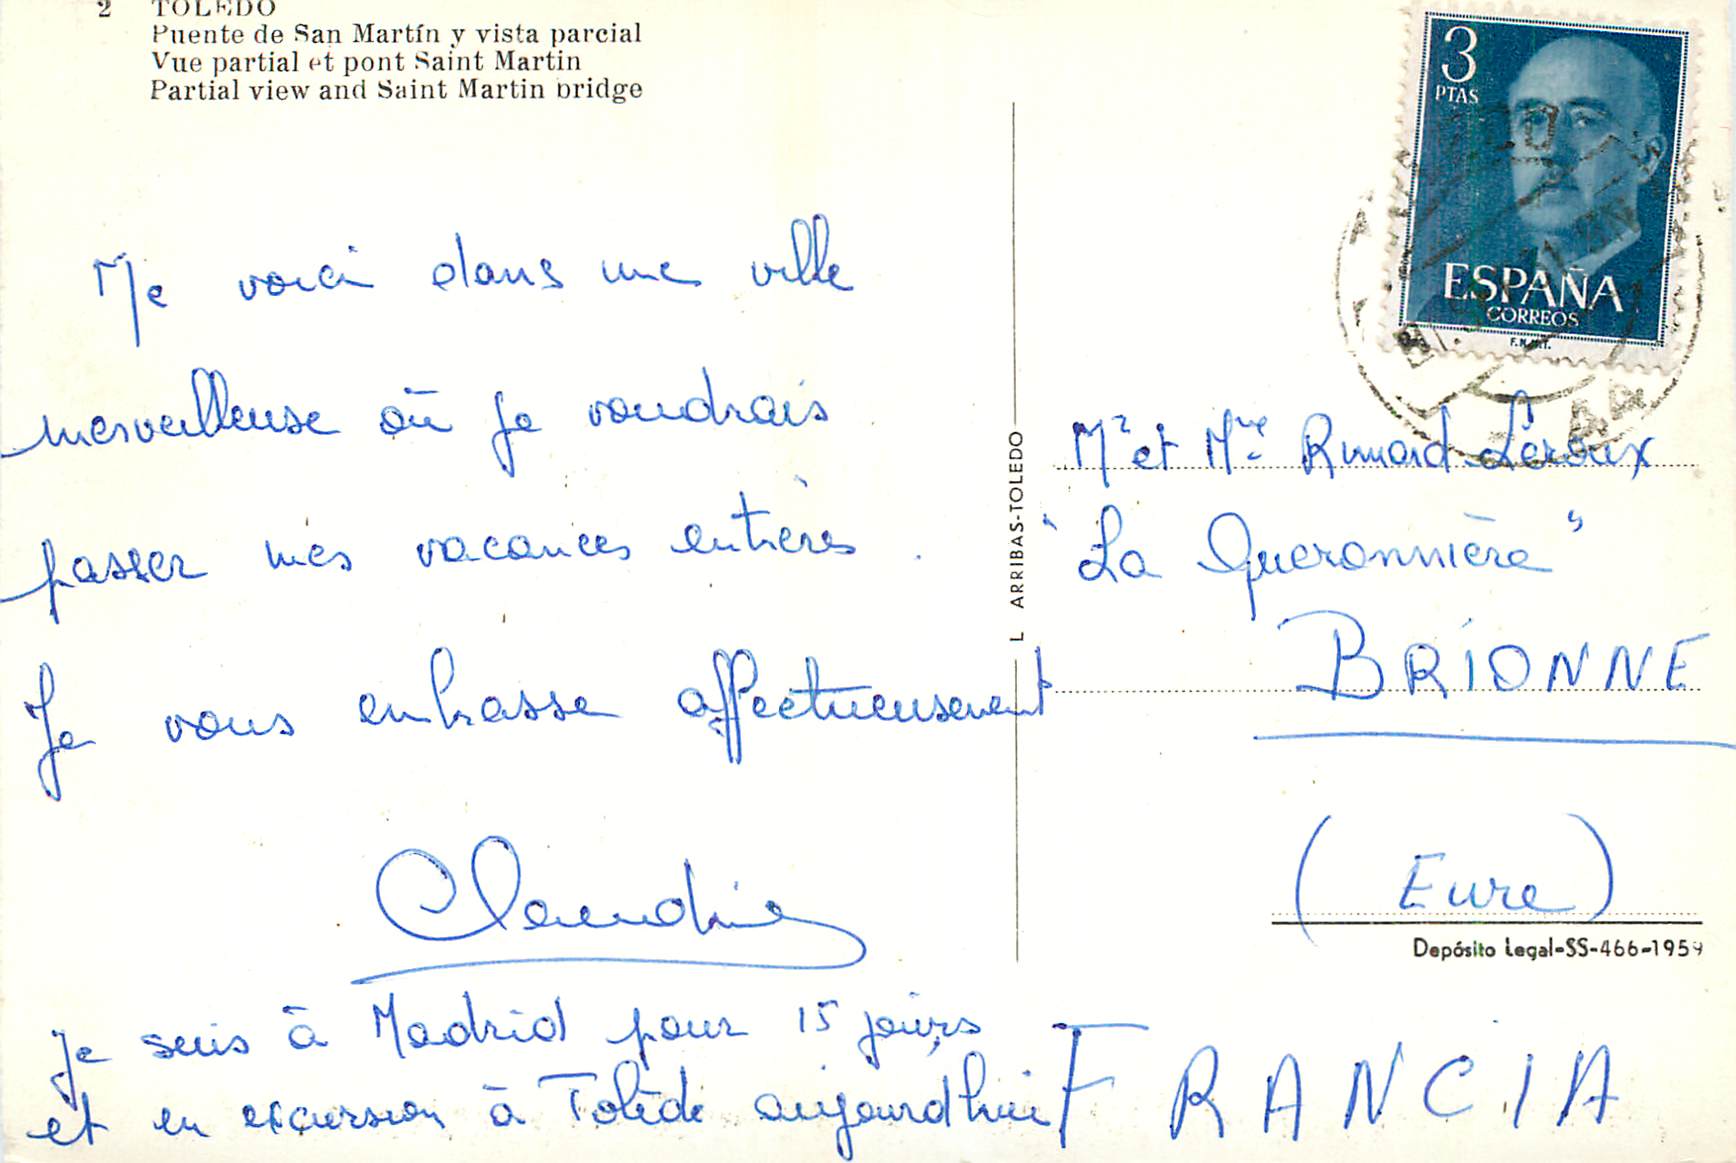 2 TOLEDO
Puente de San Martín y vista parcial
Vue partial et pont Saint Martin
Partial view and Saint Martin bridge
Me voici dans une ville
merveilleuse où je voudrais
passer mes vacances entières.
Je vous embrasse affectueusement
Claudine
Je suis à Madrid pour 15 jours
et en excursion à Tolède aujourd'hui
L. ARRIBAS-TOLEDO
3
PTAS
ESPAÑA
CORREOS
F.N.M.T.
Mr et Mme Leroux
"La Queronnière"
BRIONNE
(Eure)
Depósito Legal-SS-466-1959
FRANCIA